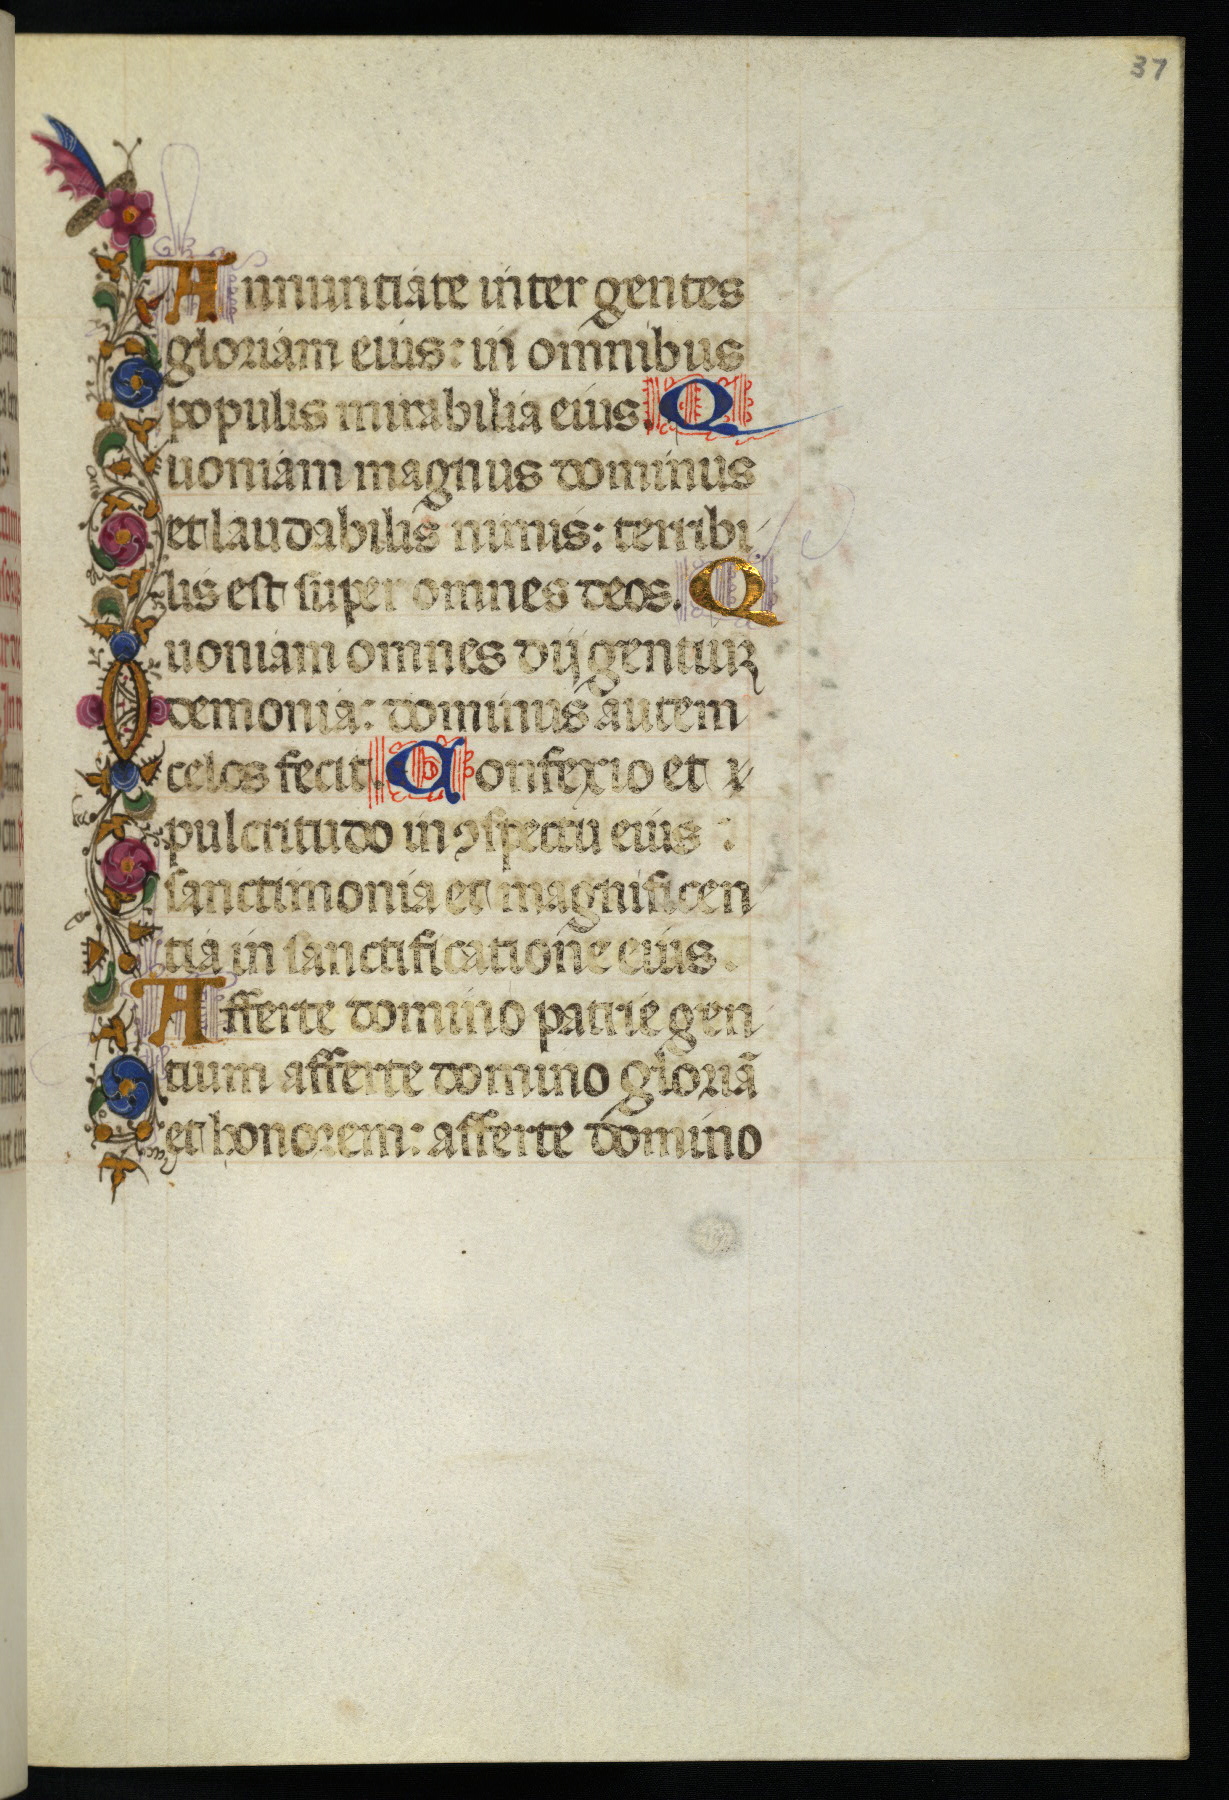 37
Annunciate inter gentes
gloriam eius: in omnibus
populis mirabilia eius. Q
uoniam magnus dominus
et laudabilis nimis: terribi
lis est super omnes deos. Q
uoniam omnes dij gentiuꝝ
demonia: dominus autem
celos fecit. Confexio et
pulcritudo in ꝯspectu eius :
sanctimonia et magnificen
tia in sanctificatione eius.
Afferte domino patrie gen
tium afferte domino gloriā
et honorem: afferte domino